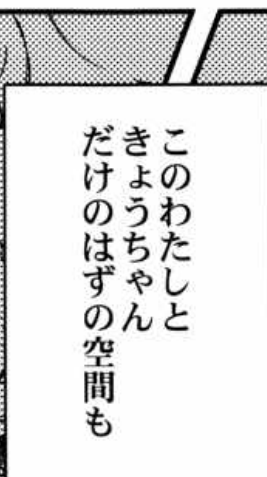 このわたしと
きょうちゃん
だけのはずの空間も